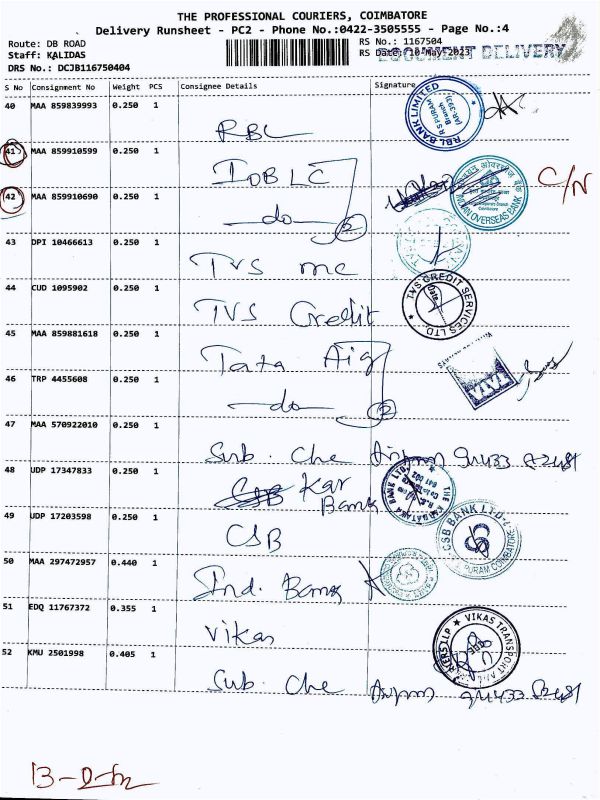 THE PROFESSIONAL COURIERS, COIMBATORE
Delivery Runsheet - PC2 - Phone No.:0422-3505555 - Page No.:4
Route: DB ROAD
Staff: KALIDAS
DRS No.: DCJB116750404
RS No.: 1167504
RS Date: 10-May-2021
DOCUMENT DELIVERY
S No Consignment No Weight PCS Consignee Details Signature
40 MAA 859839993 0.250 1
RBL
RBL BANK LIMITED RS PURAM Branch (AR-393)
41 MAA 859910599 0.250 1
IOB LC
C/N
42 MAA 859910690 0.250 1
do 2
INDIAN OVERSEAS BANK
43 DPI 10466613 0.250 1
TVS mc
44 CUD 1095902 0.250 1
TVS Credit
TVS CREDIT SERVICES LTD.
45 MAA 859881618 0.250 1
Tata Aig
46 TRP 4455608 0.250 1
do 2
TATA
47 MAA 570922010 0.250 1
Sub. Che
48 UDP 17347833 0.250 1
CSB Kar
Bank
THE KARNATAKA BANK LTD.
49 UDP 17203598 0.250 1
CSB
CSB BANK LTD. PURAM COIMBATORE
50 MAA 297472957 0.440 1
Ind. Bank
51 EDQ 11767372 0.355 1
Vikas
VIKAS TRANSPORT
52 KMU 2501998 0.405 1
Sub. Che